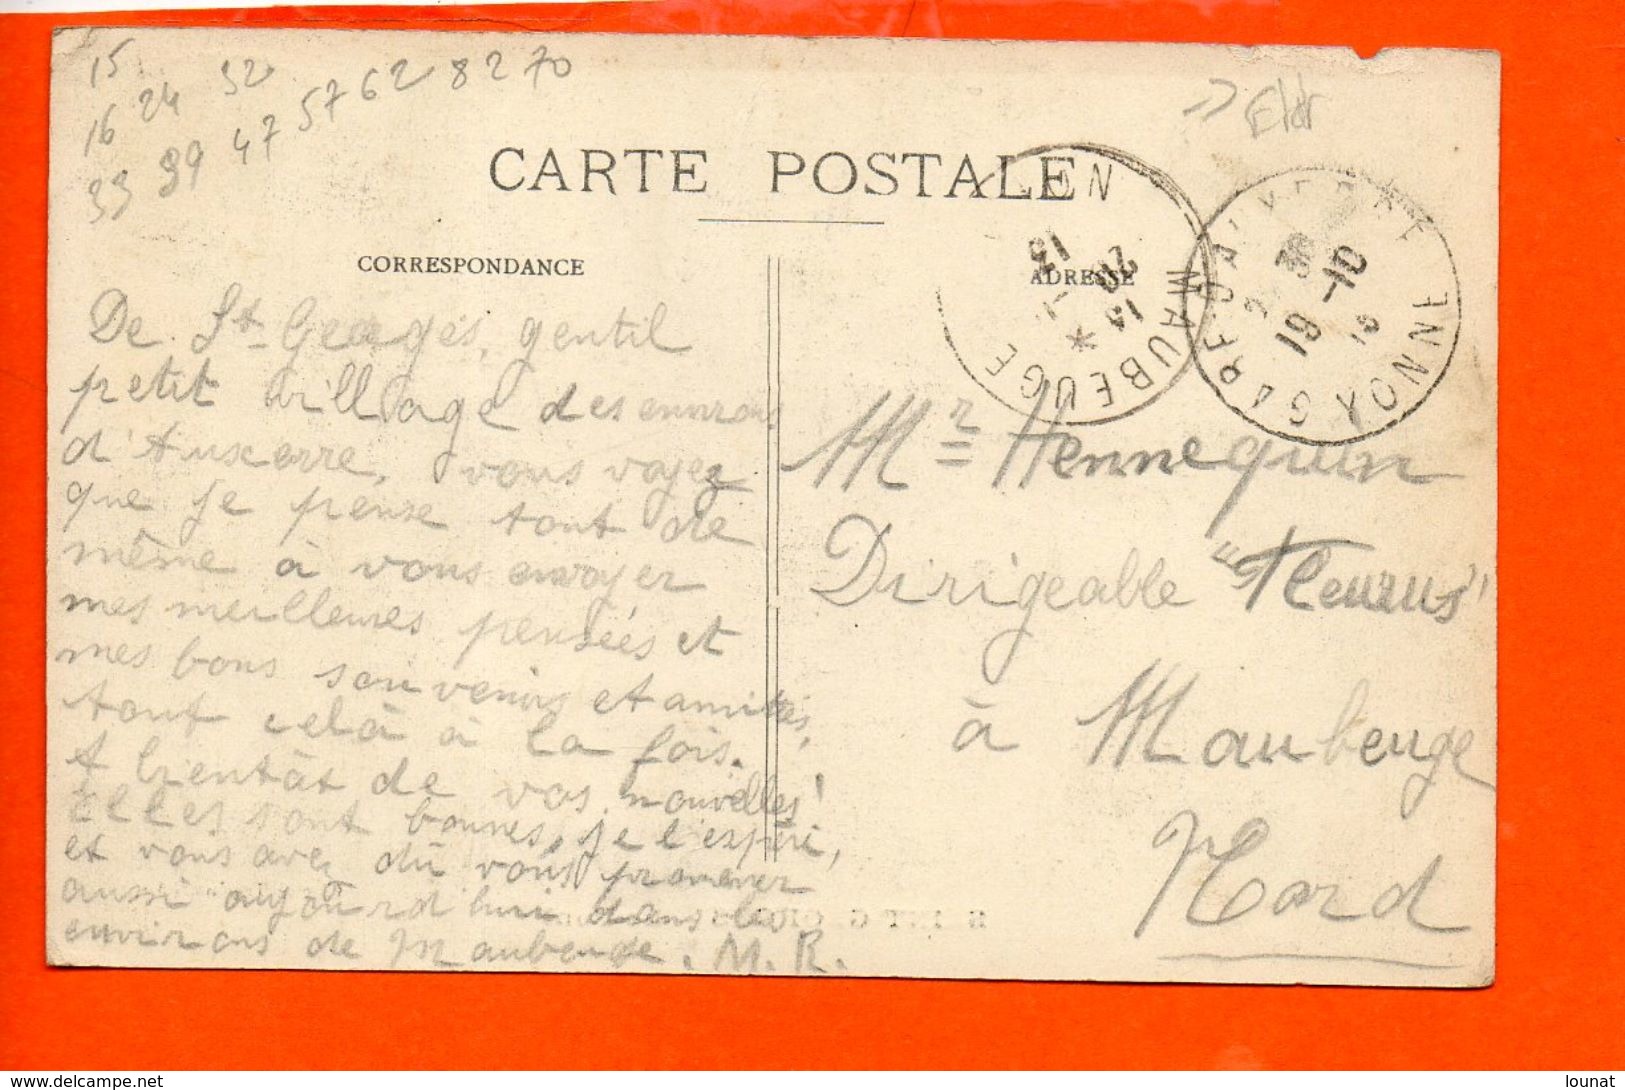 15
16 24 32
33 39 47 57 62 82 70
CARTE POSTALE
CORRESPONDANCE
ADRESSE
De St-Georges, gentil
petit village des environs
d'Auxerre, vous voyez
que je pense tout de
même à vous envoyer
mes meilleures pensées et
mes bons souvenirs et amitiés,
tout celà à la fois.
A bientôt de vos nouvelles!
Elles sont bonnes, je l'espère,
et vous avez dû vous promener
aussi aujourd'hui dans les
environs de Maubeuge. M.R.
Mr Hennequin
Dirigeable "Fleurus"
à Maubeuge
Nord
MAUBEUGE
AUXERRE GARE YONNE
19-10
lounat